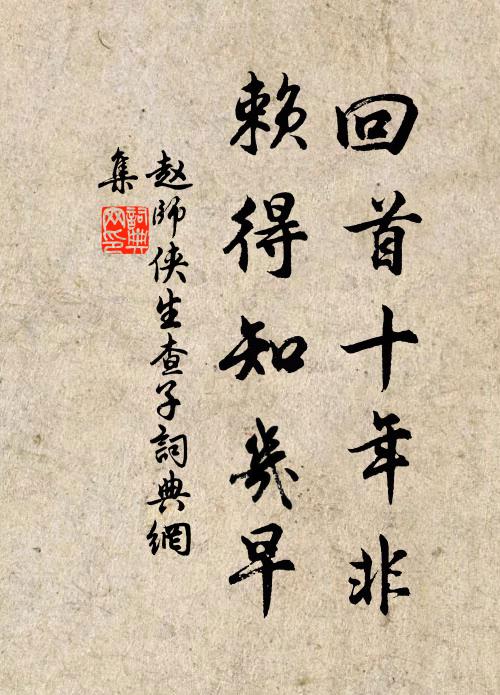 回首十年非
賴得知幾早
赵師侠生查子詞典網
集
詞典
网印